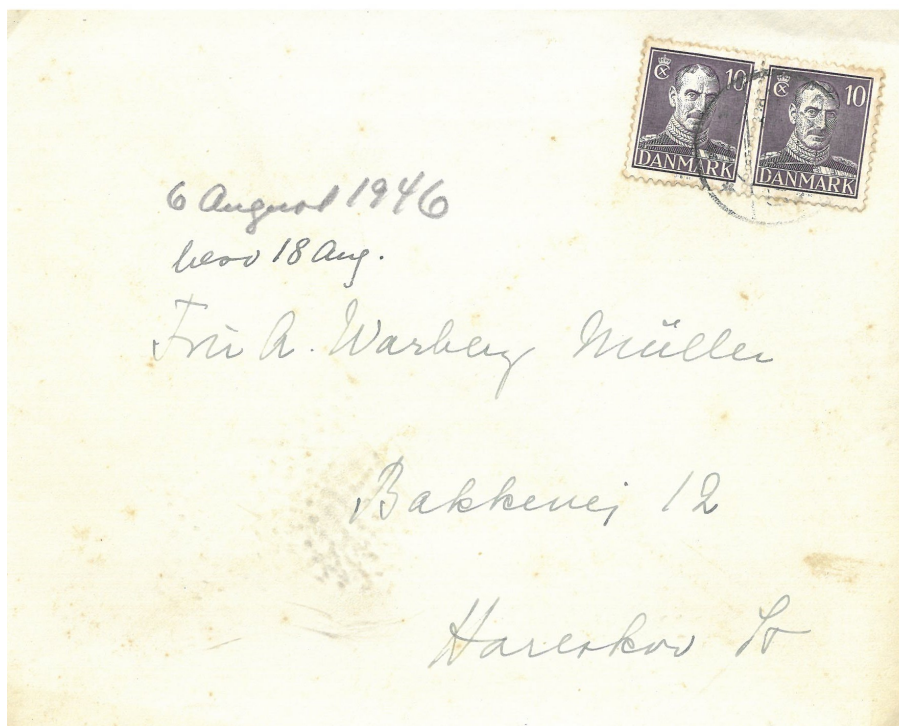 10 10
DANMARK DANMARK
6 August 1946
besv 18 Aug.
Fru A. Warberg Müller
Bakkevej 12
Hareskov St